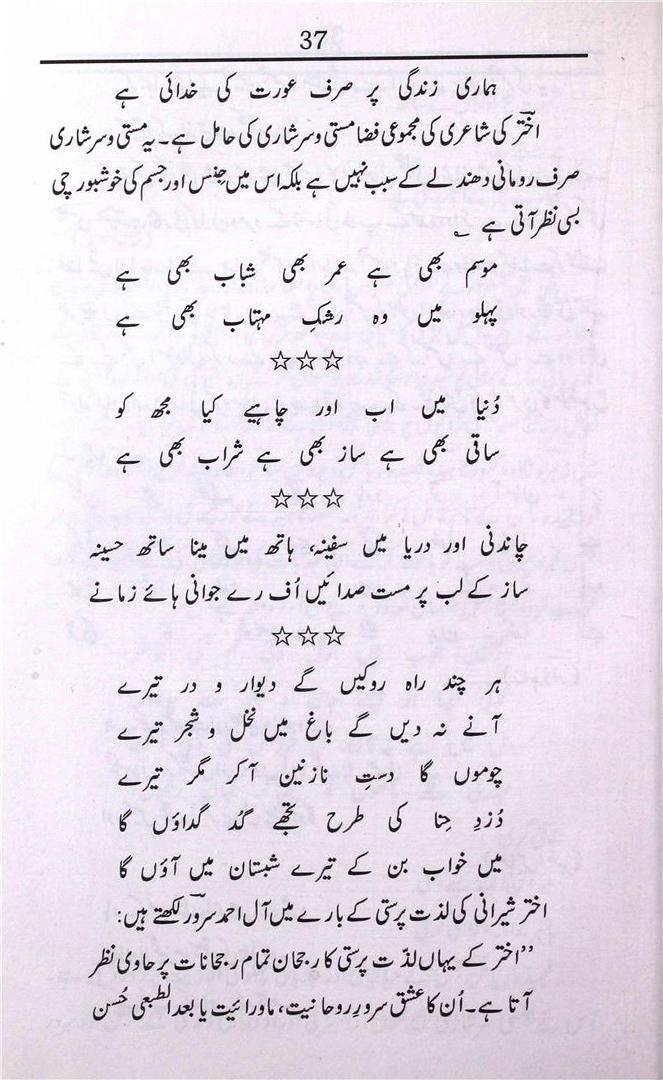 37
ہماری زندگی پر صرف عورت کی خدائی ہے
اختر کی شاعری کی مجموعی فضا مستی و سرشاری کی حامل ہے۔ یہ مستی و سرشاری
صرف رومانی دھندلے کے سبب نہیں ہے بلکہ اس میں جنس اور جسم کی خوشبو رچی
بسی نظر آتی ہے ؎
موسم بھی ہے عمر بھی شباب بھی ہے
پہلو میں وہ رشکِ مہتاب بھی ہے
☆☆☆
دُنیا میں اب اور چاہیے کیا مجھ کو
ساقی بھی ہے ساز بھی ہے شراب بھی ہے
☆☆☆
چاندنی اور دریا میں سفینہ، ہاتھ میں مینا ساتھ حسینہ
ساز کے لب پر مست صدائیں اُف رے جوانی ہائے زمانے
☆☆☆
ہر چند راہ روکیں گے دیوار و در تیرے
آنے نہ دیں گے باغ میں نخل و شجر تیرے
چوموں گا دستِ نازنین آکر مگر تیرے
دُزدِ حِنا کی طرح تجھے گُد گداؤں گا
میں خواب بن کے تیرے شبستان میں آؤں گا
اختر شیرانی کی لذت پرستی کے بارے میں آل احمد سرورؔ لکھتے ہیں:
”اختر کے یہاں لذّت پرستی کا رجحان تمام رجحانات پر حاوی نظر
آتا ہے۔ اُن کا عشق سرورِ روحانیت، ماورائیت یا بعد الطبعی حُسن